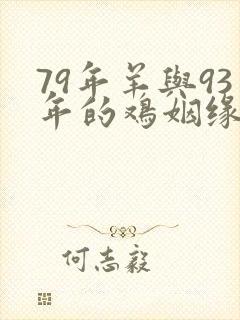 79年羊與93
年的鸡姻缘
何志毅